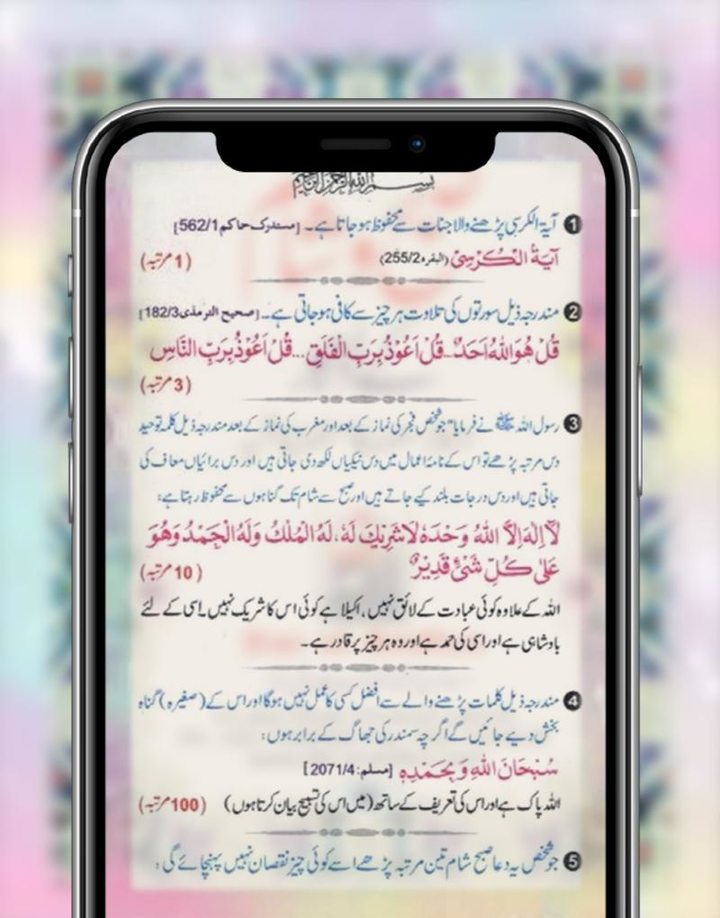 بسم الله الرحمن الرحيم
1 آیۃ الکرسی پڑھنے والا جنات سے محفوظ ہو جاتا ہے۔ [مستدرک حاکم 562/1]
آيَةُ الْكُرْسِىْ (البقرہ 255/2) (1 مرتبہ)
2 مندرجہ ذیل سورتوں کی تلاوت ہر چیز سے کافی ہو جاتی ہے۔ [صحیح الترمذی 182/3]
قُلْ هُوَاللّٰهُ اَحَدٌ... قُلْ اَعُوْذُ بِرَبِّ الْفَلَقِ... قُلْ اَعُوْذُ بِرَبِّ النَّاسِ
(3 مرتبہ)
3 رسول اللہ ﷺ نے فرمایا "جو شخص فجر کی نماز کے بعد اور مغرب کی نماز کے بعد مندرجہ ذیل کلمہ توحید
دس مرتبہ پڑھے تو اس کے نامۂ اعمال میں دس نیکیاں لکھ دی جاتی ہیں اور دس برائیاں معاف کی
جاتی ہیں اور دس درجات بلند کیے جاتے ہیں اور صبح سے شام تک گناہوں سے محفوظ رہتا ہے:
لَآ اِلٰهَ اِلَّا اللّٰهُ وَحْدَهٗ لَا شَرِيْكَ لَهٗ، لَهُ الْمُلْكُ وَلَهُ الْحَمْدُ وَهُوَ
عَلٰى كُلِّ شَىْءٍ قَدِيْرٌ (10 مرتبہ)
اللہ کے علاوہ کوئی عبادت کے لائق نہیں، اکیلا ہے کوئی اس کا شریک نہیں۔ اسی کے لئے
بادشاہی ہے اور اسی کی حمد ہے اور وہ ہر چیز پر قادر ہے۔
4 مندرجہ ذیل کلمات پڑھنے والے سے افضل کسی کا عمل نہیں ہوگا اور اس کے (صغیرہ) گناہ
بخش دیے جائیں گے اگرچہ سمندر کی جھاگ کے برابر ہوں:
سُبْحَانَ اللّٰهِ وَبِحَمْدِهٖ [مسلم: 2071/4]
اللہ پاک ہے اور اس کی تعریف کے ساتھ (میں اس کی تسبیح بیان کرتا ہوں) (100 مرتبہ)
5 جو شخص یہ دعا صبح شام تین مرتبہ پڑھے اسے کوئی چیز نقصان نہیں پہنچائے گی: